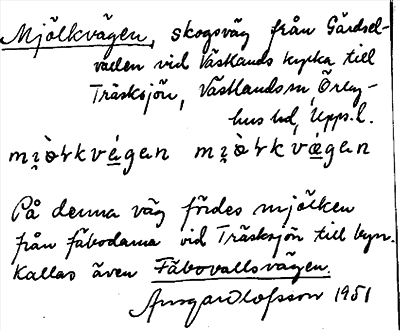 Mjölkvägen, skogsväg från Gärdsel-
vaden vid Västlands kyrka till
Träsksjön, Västlands sn, Örby-
hus hd, Upps. l.
På denna väg fördes mjölken
från fäbodarna vid Träsksjön till byn.
Kallas även Fäbovallsvägen.
Ansgar Olofsson 1951